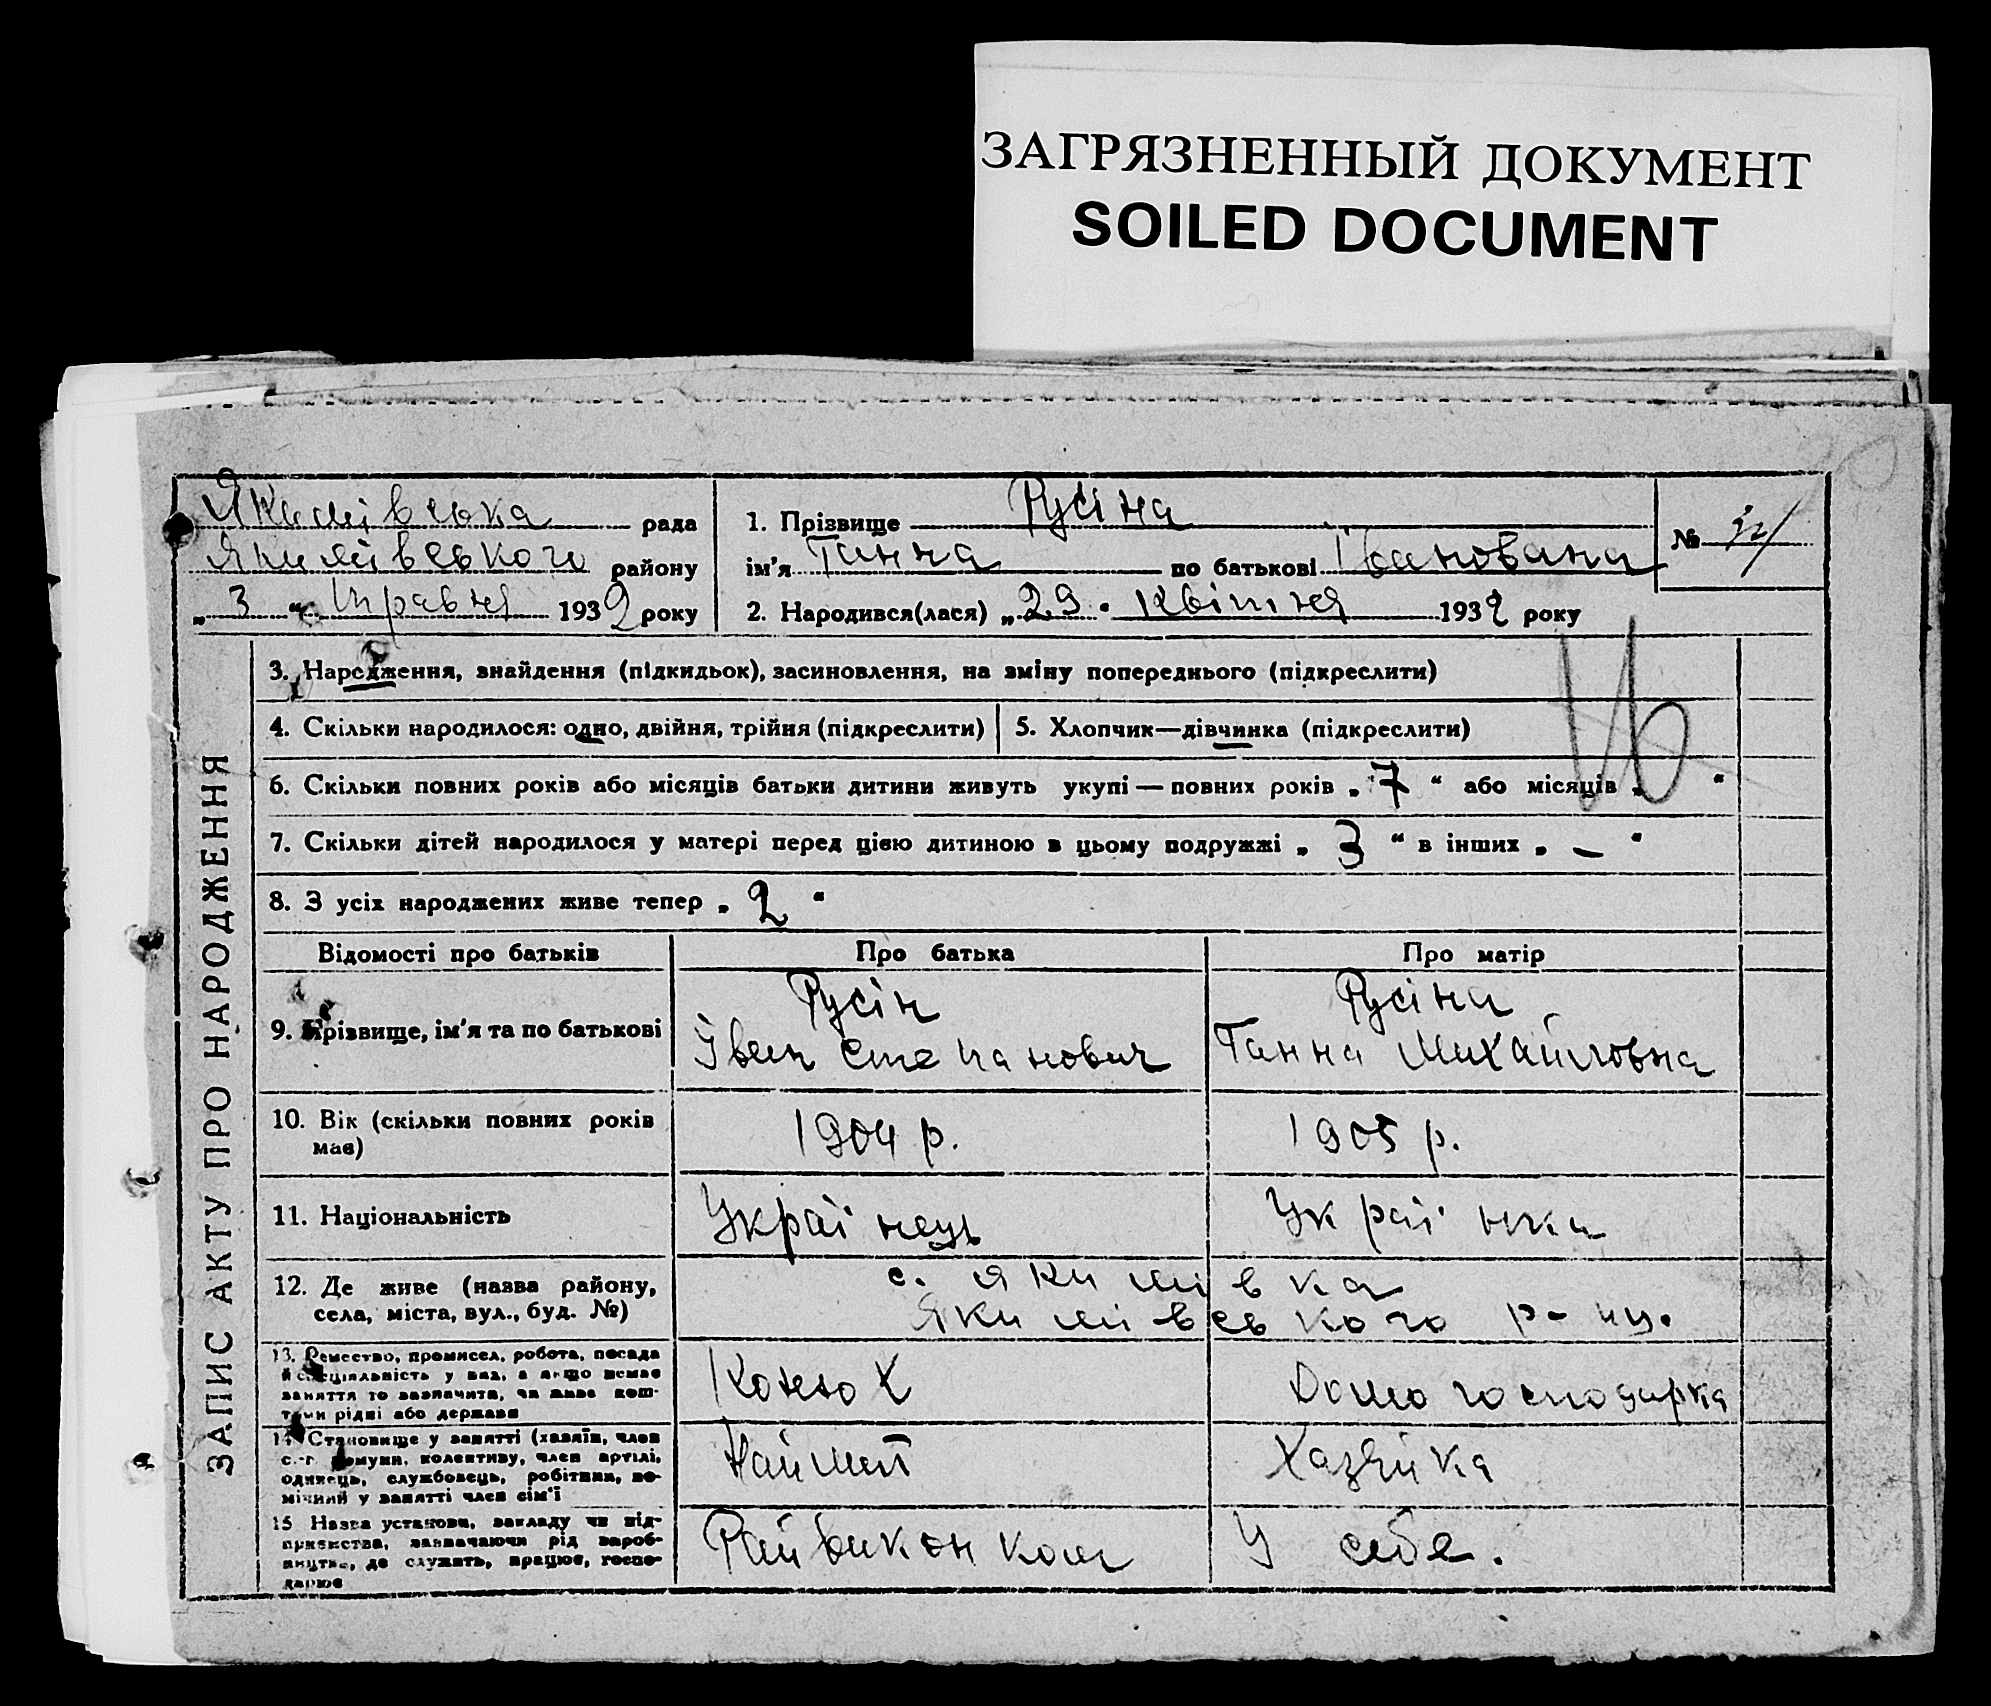 ЗАГРЯЗНЕННЫЙ ДОКУМЕНТ
SOILED DOCUMENT
Якимівська рада
Якимівського району
„ 3 “ травня 1932 року
1. Прізвище Русіна
ім'я Ганна по батькові Іванована
2. Народився(лася) „ 29 . квітня 1932 року
№
ЗАПИС АКТУ ПРО НАРОДЖЕННЯ
3. Народження, знайдення (підкидьок), засиновлення, на зміну попереднього (підкреслити)
4. Скільки народилося: одно, двійня, трійня (підкреслити)
5. Хлопчик—дівчинка (підкреслити)
6. Скільки повних років або місяців батьки дитини живуть укупі — повних років „ 7 “ або місяців „ “
7. Скільки дітей народилося у матері перед цією дитиною в цьому подружжі „ 3 “ в інших „ – “
8. З усіх народжених живе тепер „ 2 “
Відомості про батьків
Про батька
Про матір
9. Прізвище, ім'я та по батькові
Русін
Іван Степанович
Русіна
Ганна Михайловна
10. Вік (скільки повних років
має)
1904 р.
1905 р.
11. Національність
Українець
Українка
12. Де живе (назва району,
села, міста, вул., буд. №)
с. Якимівка
Якимівського р-ну.
13. Ремество, промисел, робота, посада
й спеціяльність у них, а якщо немає
заняття то зазначити, чи живе кош-
тами рідні або держави
Конюх
Домогосподарка
14. Становище у занятті (хазяїн, член
с.-г. комуни, колективу, член артілі,
одинець, службовець, робітник, по-
мічний у занятті член сім'ї
Наймит
Хазяйка
15 Назва установи, закладу чи під-
приємства, зазначаючи рід вироб-
ництва, де служить, працює, госпо-
дарює
Райвиконком
У себе.